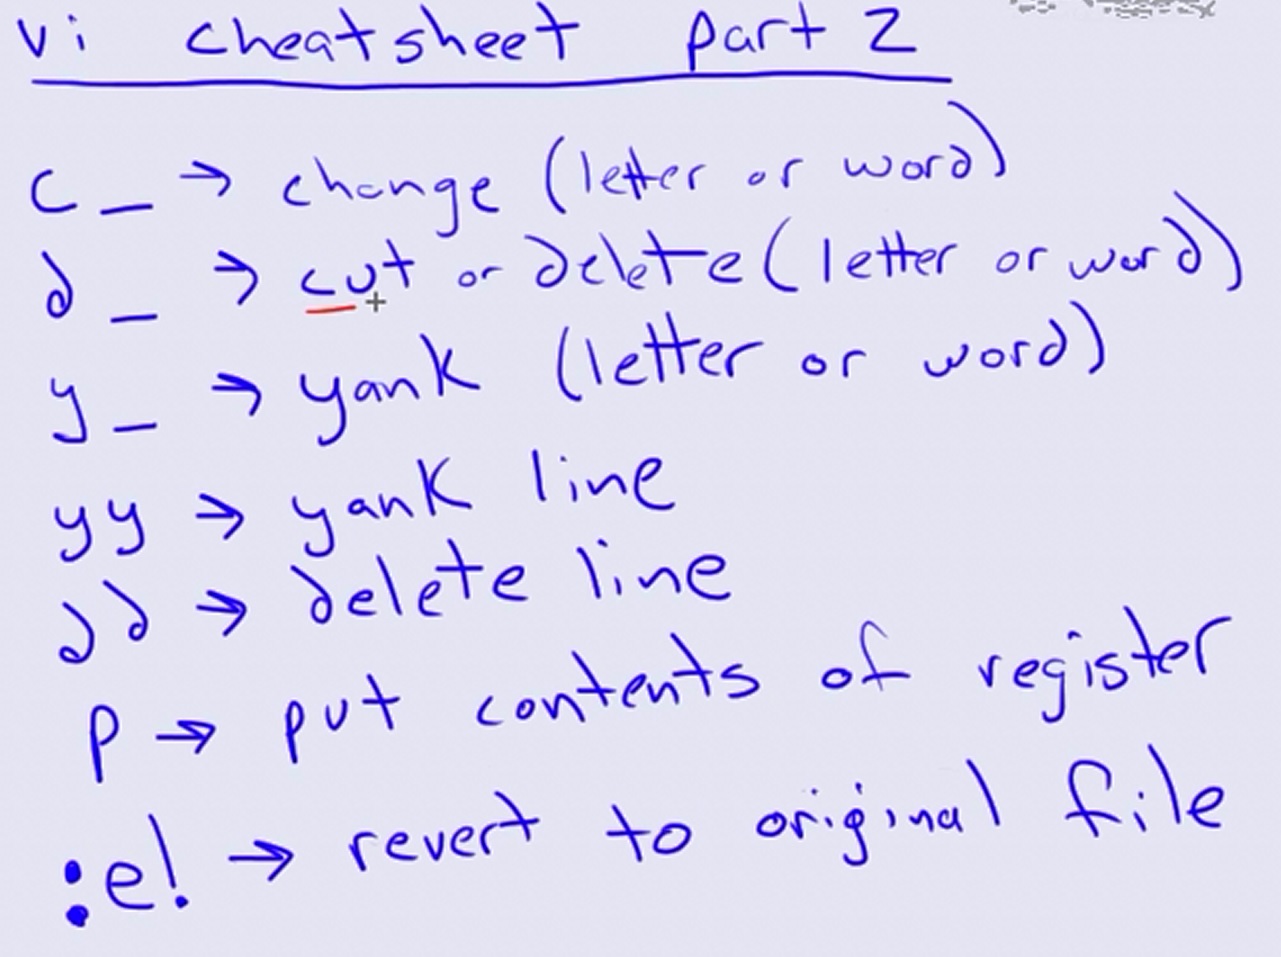 vi cheatsheet part 2
c _ → change (letter or word)
d _ → cut or delete (letter or word)
y _ → yank (letter or word)
yy → yank line
dd → delete line
p → put contents of register
:e! → revert to original file